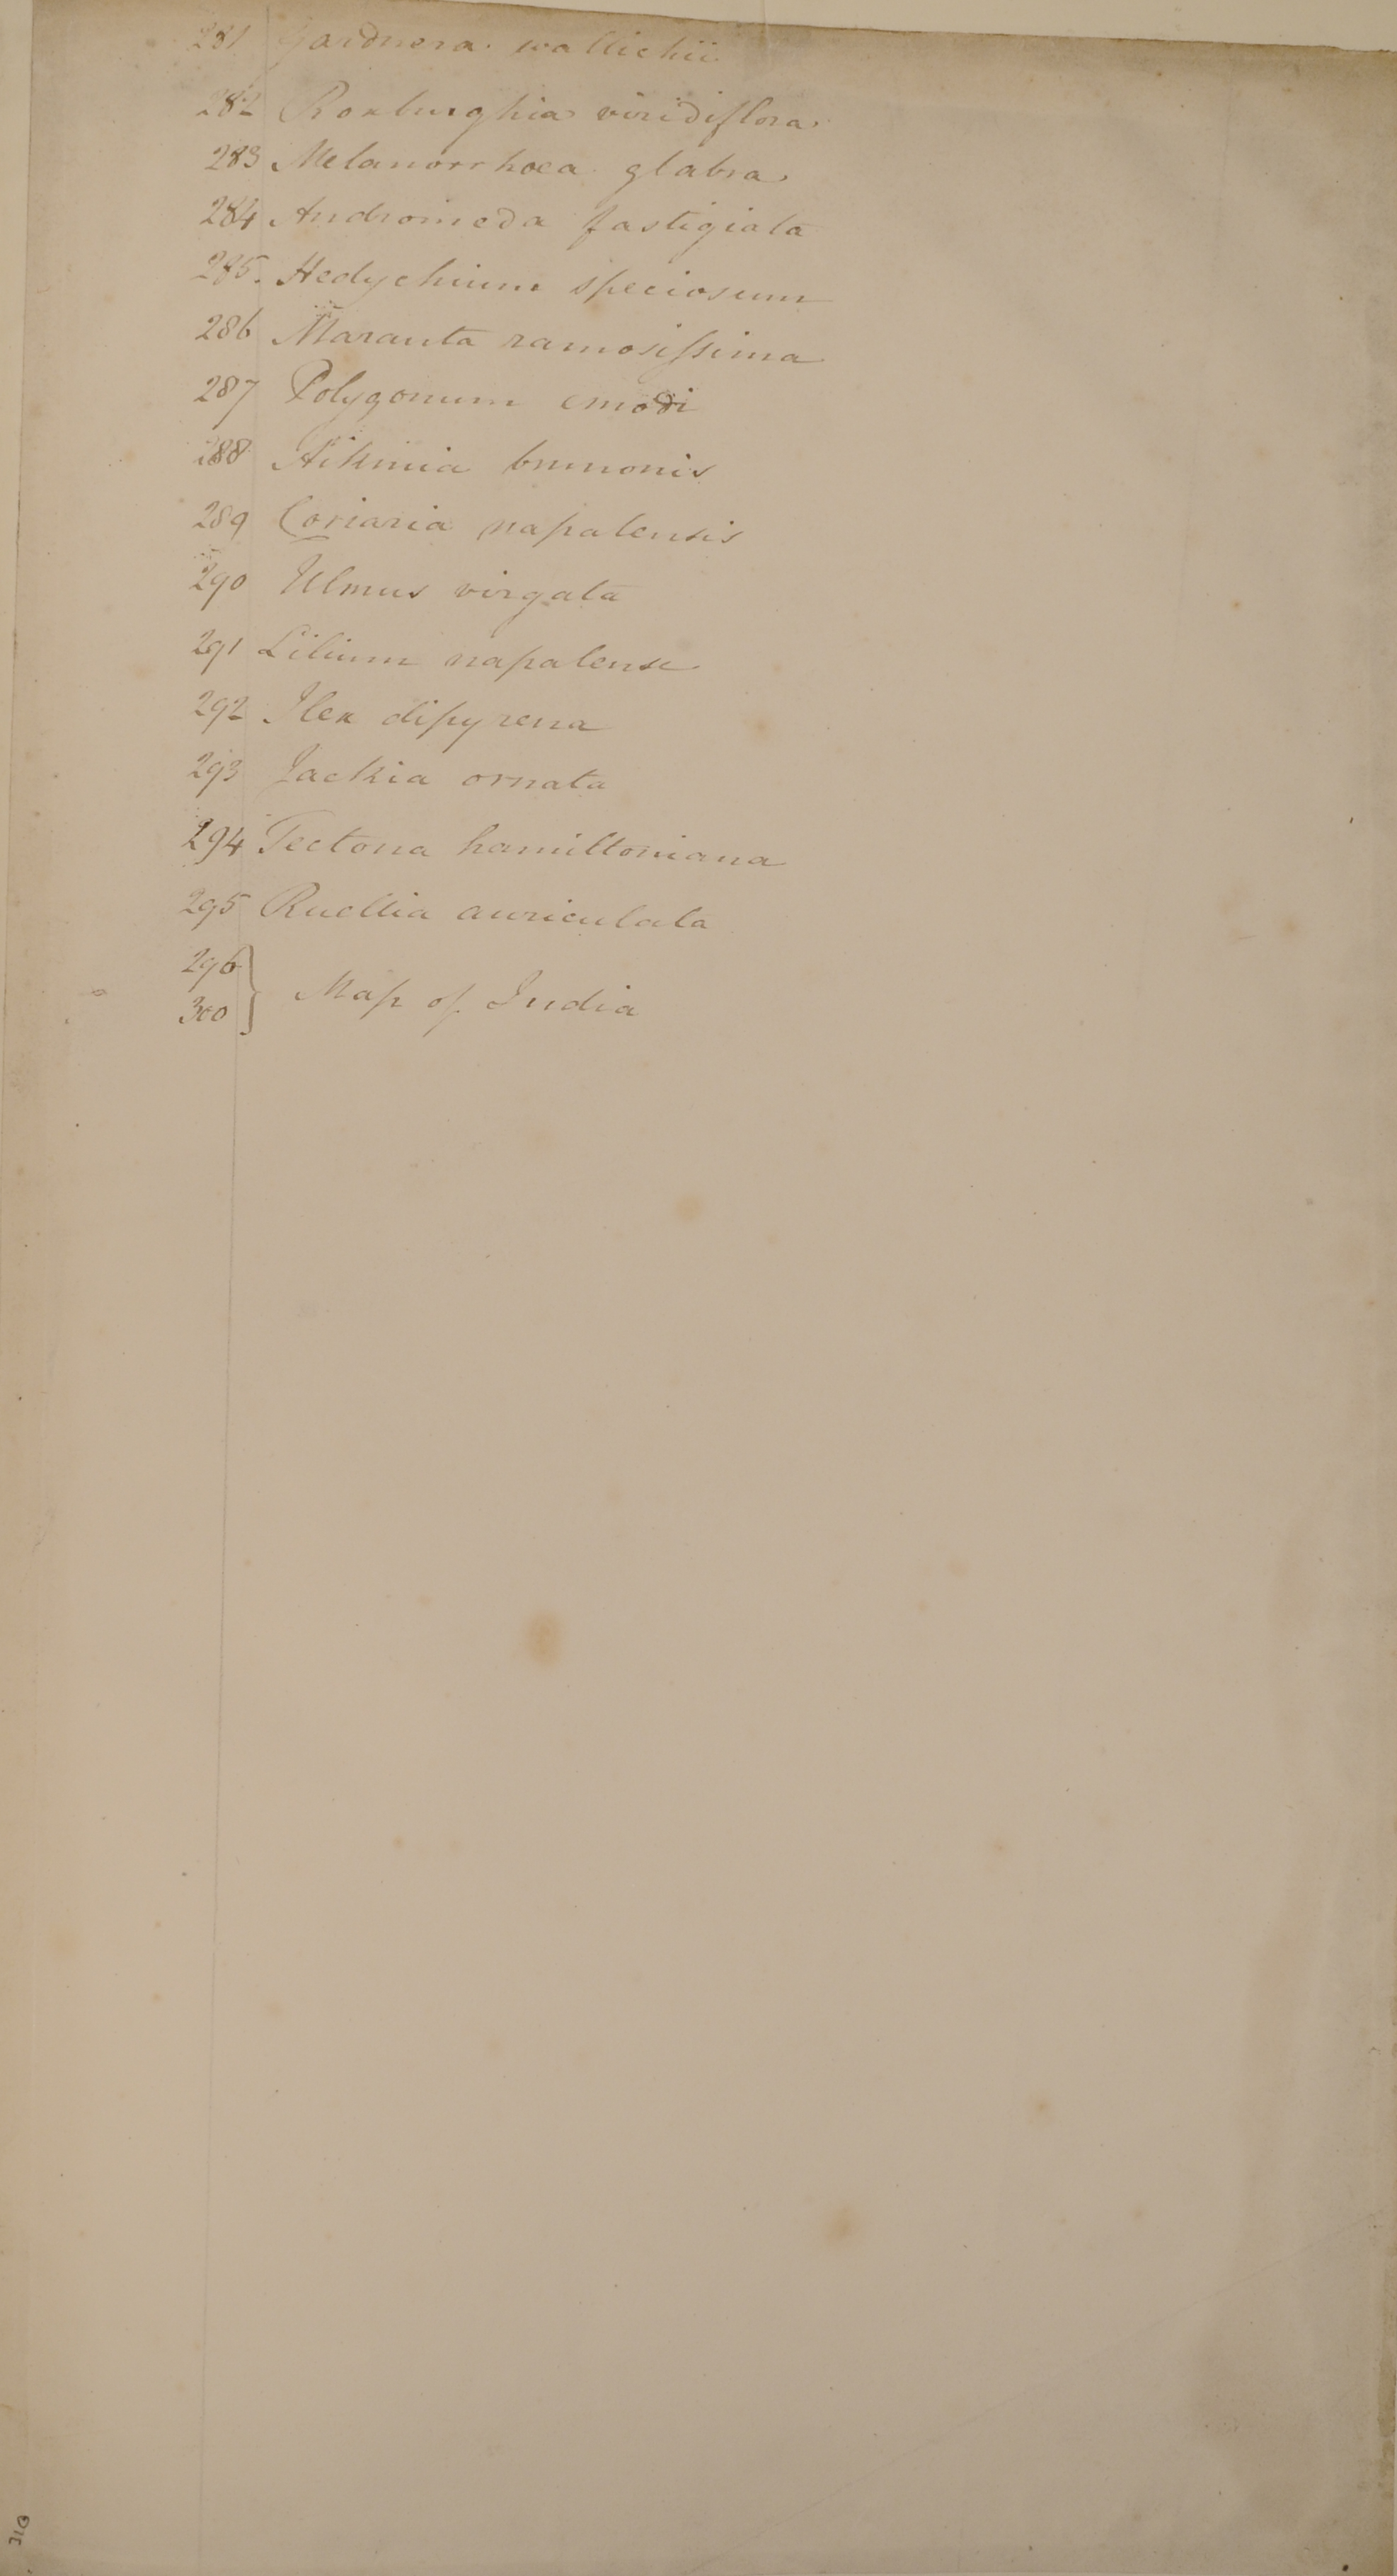 281 Gardnera wallichii
282 Roxburghia viridiflora
283 Melanorrhoea glabra
284 Andromeda fastigiata
285. Hedychium speciosum
286 Maranta ramosissima
287 Polygonum emodi
288 Aikinia brunonis
289 Coriaria napalensis
290 Ulmus virgata
291 Lilium napalense
292 Ilex dipyrena
293 Jackia ornata
294 Tectona hamiltoniana
295 Ruellia auriculata
296
300 } Map of India